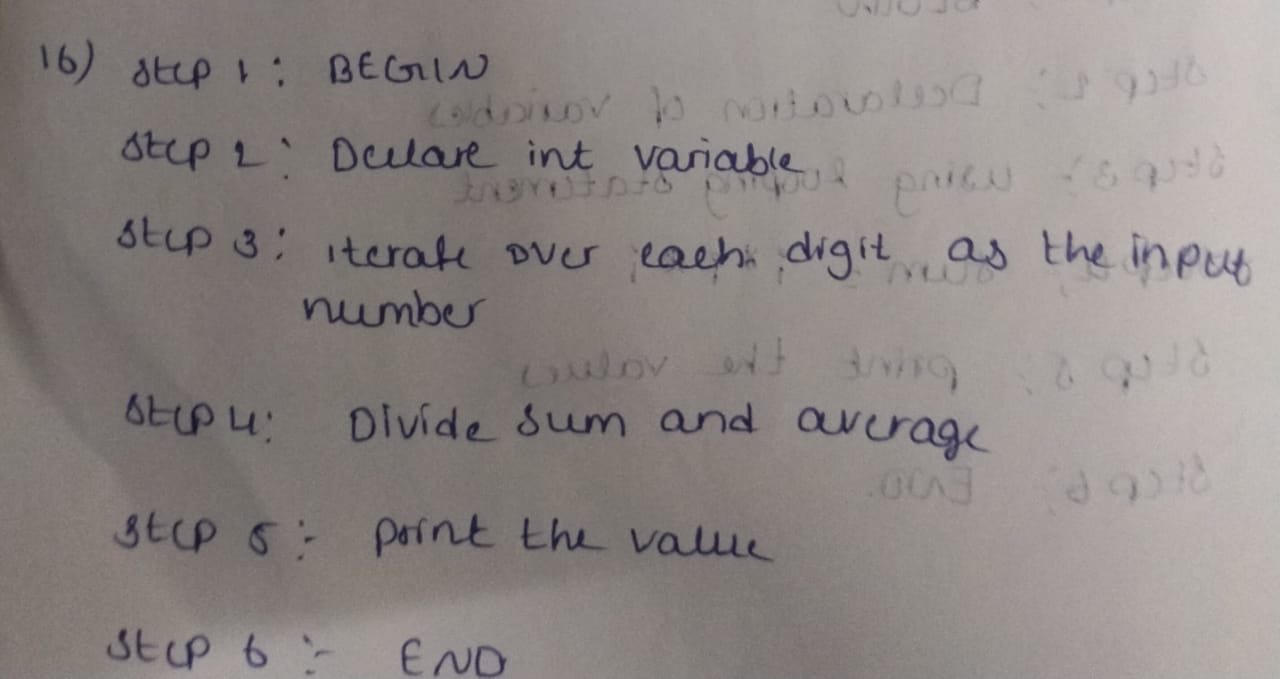 16) Step 1 : BEGIN
Step 2 : Declare int variable
Step 3 : iterate over each digit as the input
number
Step 4 : Divide sum and average
Step 5 :- print the value
Step 6 :- END